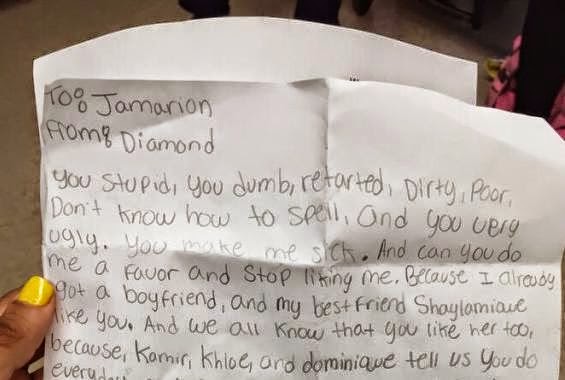 To: Jamarion
From: Diamond
You stupid, you dumb, retarted, Dirty, Poor,
Don't know how to spell, and you very
ugly. You make me sick. And can you do
me a favor and stop liking me. Because I already
got a boyfriend, and my best friend Shaylamique
like you. And we all know that you like her too,
because, Kamir, Khloe, and dominique tell us you do
everyday